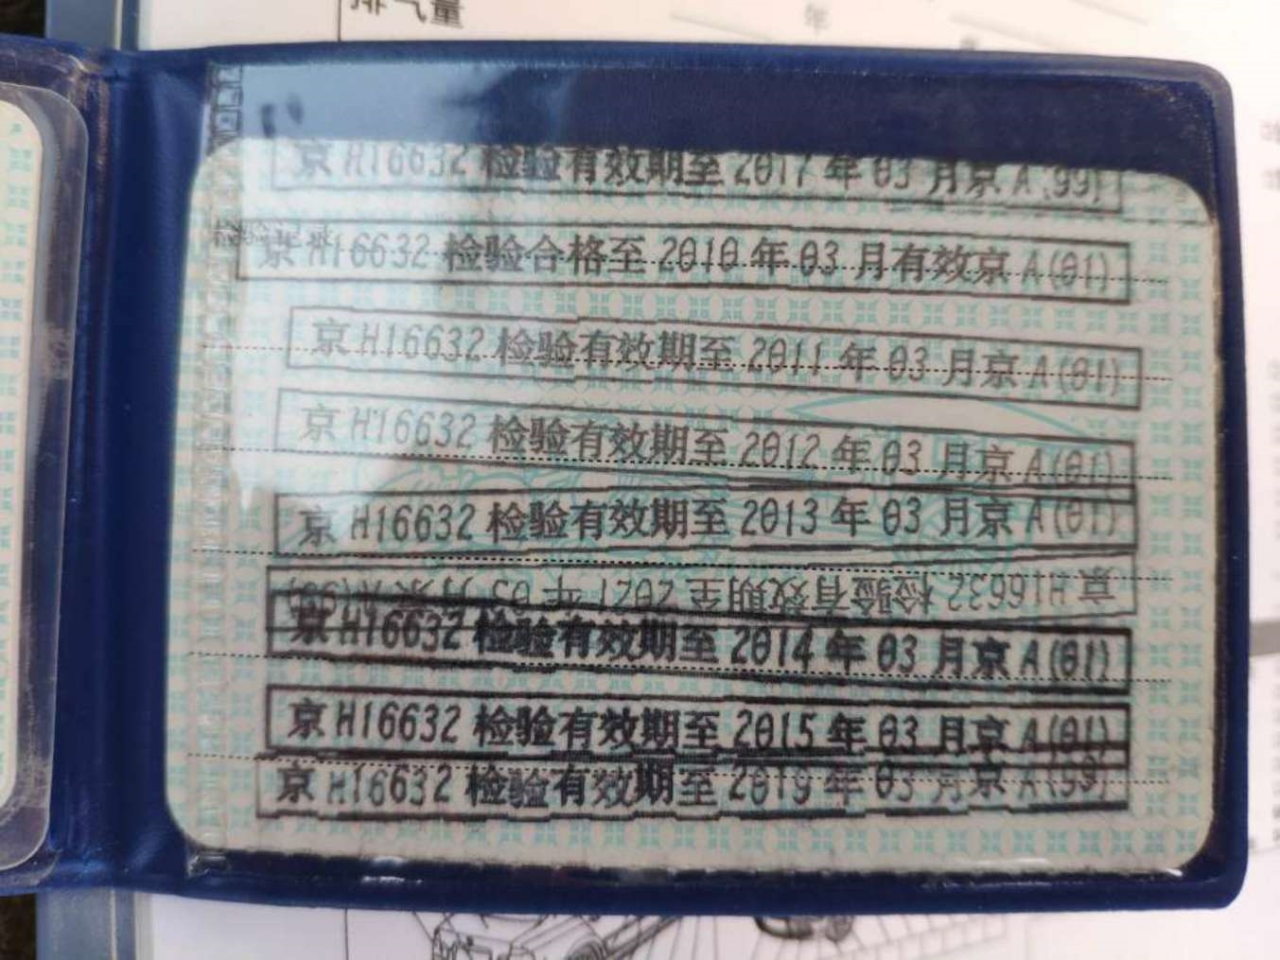 排气量
年
京 H16632 检验有效期至 2017 年 03 月京 A(99)
检验记录
京 H16632 检验合格至 2010 年 03 月有效京 A(01)
京 H16632 检验有效期至 2011 年 03 月京 A(01)
京 H16632 检验有效期至 2012 年 03 月京 A(01)
京 H16632 检验有效期至 2013 年 03 月京 A(01)
京 H16632 检验有效期至 2021 年 03 月京 A(99)
京 H16632 检验有效期至 2014 年 03 月京 A(01)
京 H16632 检验有效期至 2015 年 03 月京 A(01)
京 H16632 检验有效期至 2019 年 03 月京 A(99)